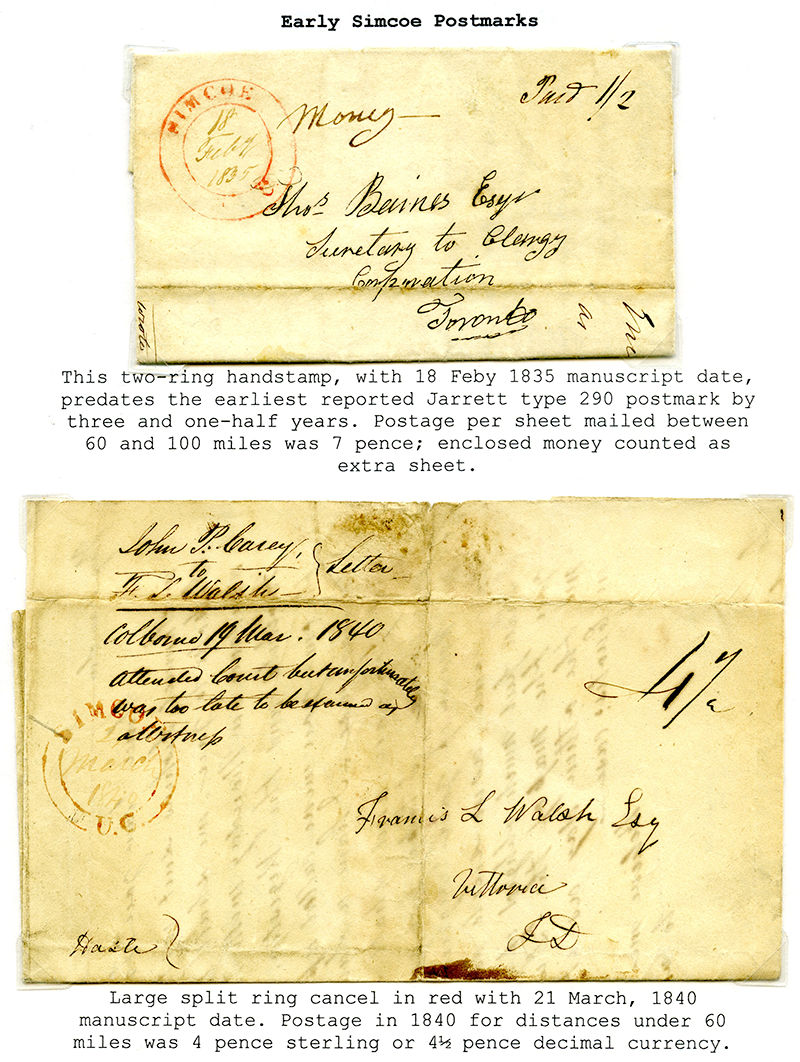 Early Simcoe Postmarks
SIMCOE
18
Feby
1835
Money
Paid 1/2
Thos Baines Esqr
Secretary to Clergy
Corporation
Toronto
This two-ring handstamp, with 18 Feby 1835 manuscript date,
predates the earliest reported Jarrett type 290 postmark by
three and one-half years. Postage per sheet mailed between
60 and 100 miles was 7 pence; enclosed money counted as
extra sheet.
John P. Carey,
to
F. L. Walsh
Letter
Colborne 19 Mar. 1840
Attended Court but unfortunately
was too late to be examined as
a witness
SIMCOE
March
U.C.
4 1/2
Francis L Walsh Esq
Vittoria
Haste
Large split ring cancel in red with 21 March, 1840
manuscript date. Postage in 1840 for distances under 60
miles was 4 pence sterling or 4½ pence decimal currency.